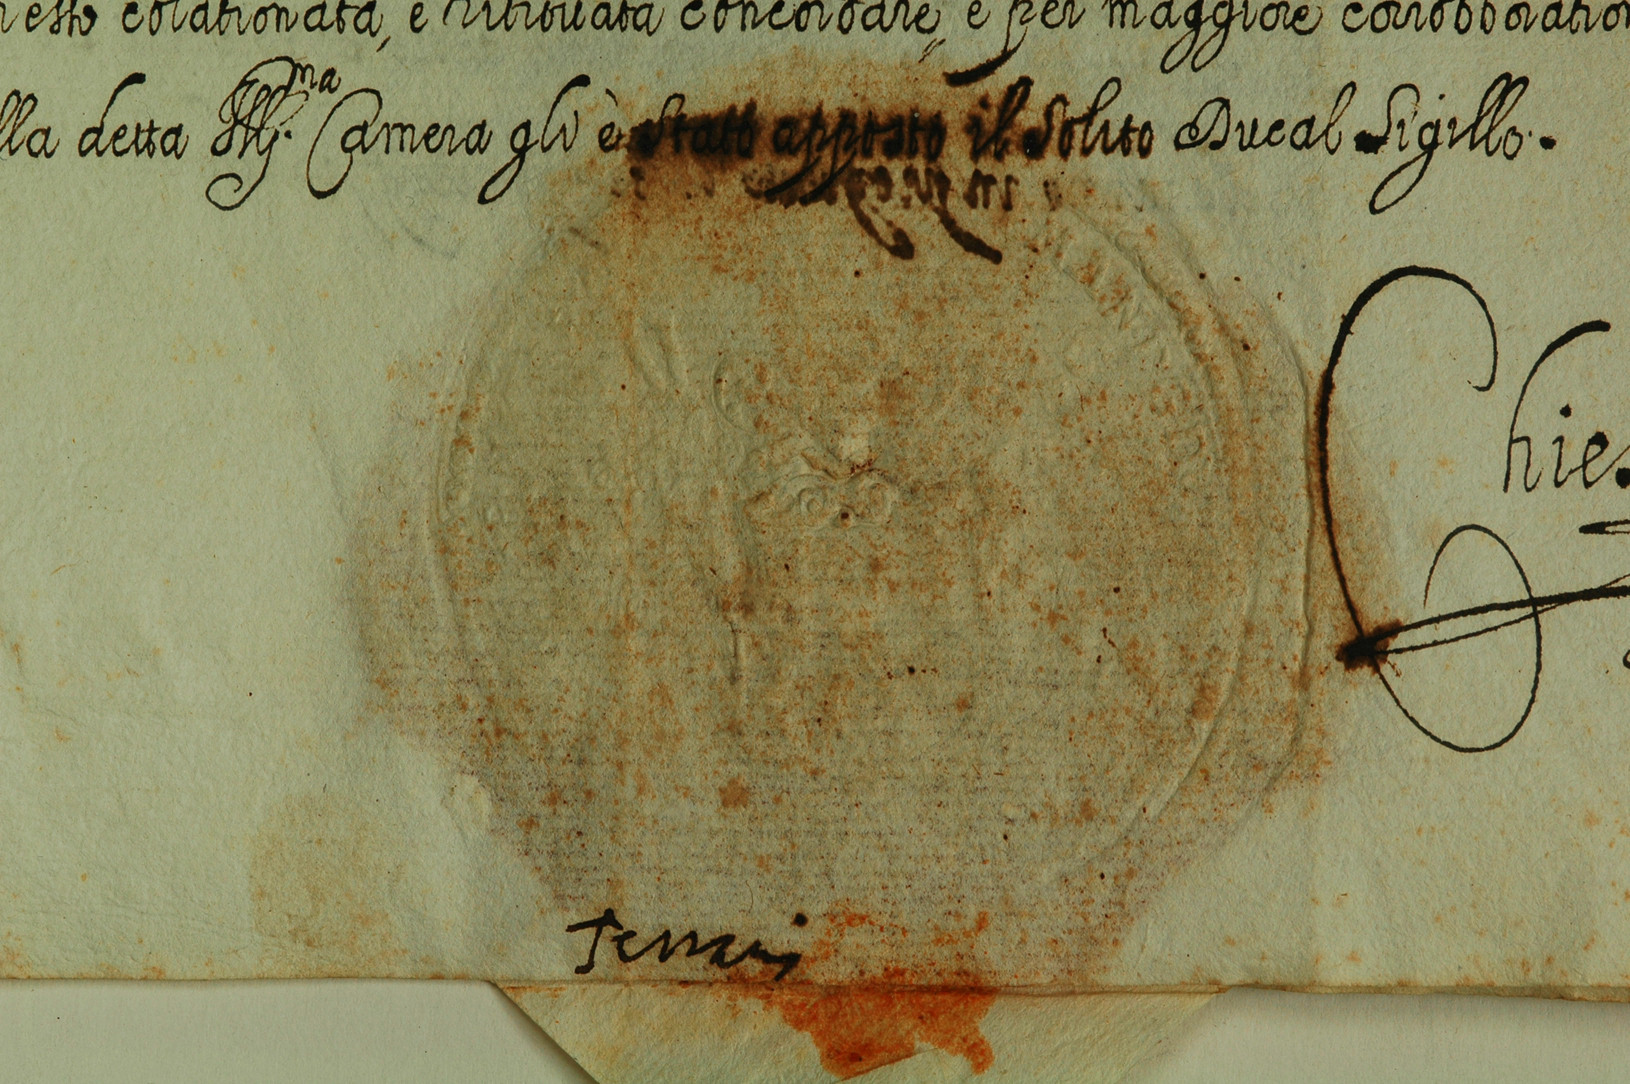 colationata, e ritrovata concordare, e per maggiore corrobboration
lla detta Ill.ma Camera gli è stato apposto il Solito Ducal Sigillo.
Chies
Ferrari